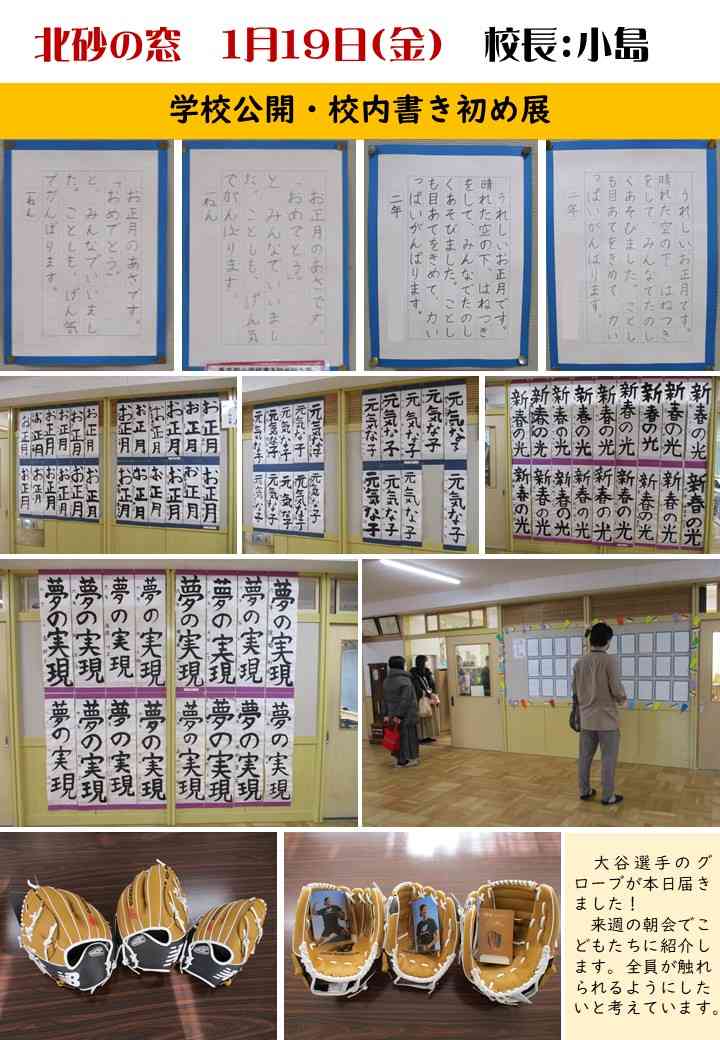 北砂の窓　1月19日(金)　校長：小島
学校公開・校内書き初め展
お正月のあさです。
「おめでとう。」
と、みんなでいいまし
た。ことしも、げん気
でがんばります。
一ねん
お正月のあさです。
「おめでとう。」
と、みんなでいいまし
た。ことしも、げん気
でがんばります。
一ねん
うれしいお正月です。
晴れた空の下、はねつき
をして、みんなでたのし
くあそびました。ことし
も目あてをきめて、力い
っぱいがんばります。
二年
うれしいお正月です。
晴れた空の下、はねつき
をして、みんなでたのし
くあそびました。ことし
も目あてをきめて、力い
っぱいがんばります。
二年
お正月
元気な子
新春の光
夢の実現
大谷選手のグ
ローブが本日届き
ました！
来週の朝会でこ
どもたちに紹介し
ます。全員が触れ
られるようにした
いと考えています。